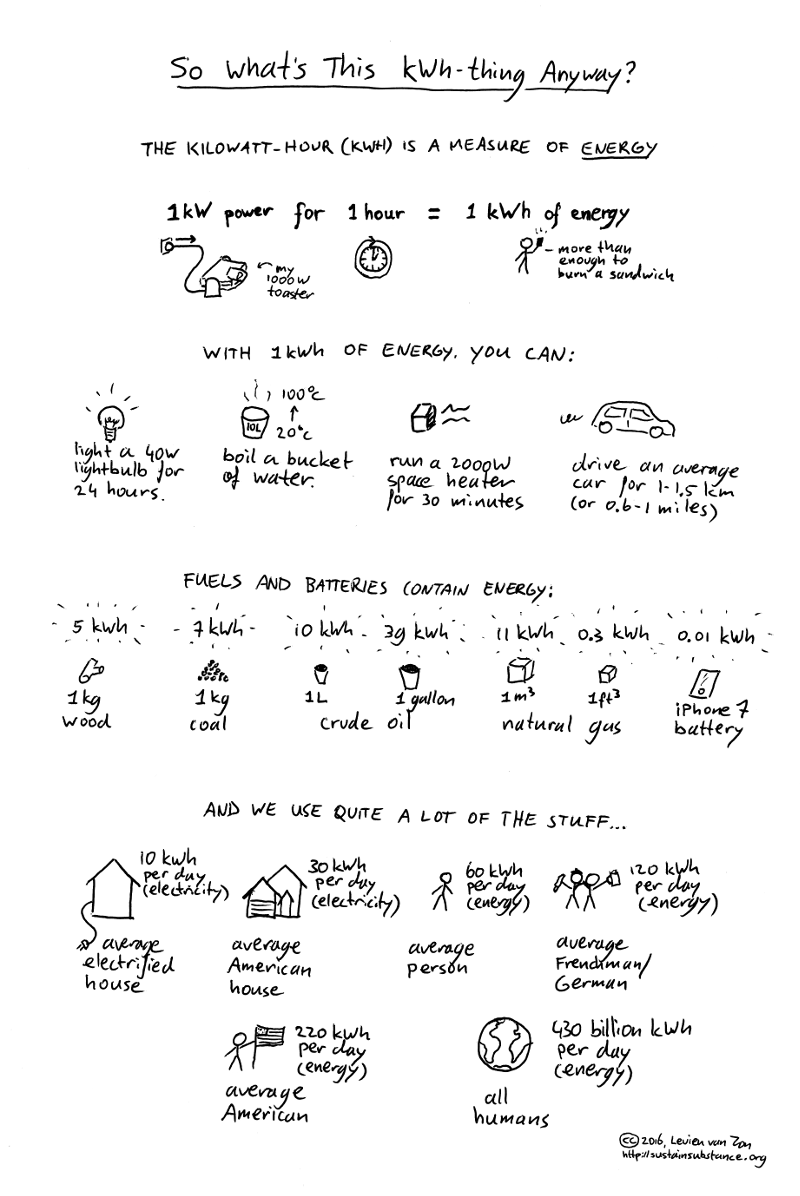 So What's This kWh-thing Anyway?
THE KILOWATT-HOUR (KWH) IS A MEASURE OF ENERGY
1kW power for 1 hour = 1 kWh of energy
my
1000W
toaster
more than
enough to
burn a sandwich
WITH 1kWh OF ENERGY, YOU CAN:
light a 40W
lightbulb for
24 hours.
10L
100°C
20°C
boil a bucket
of water.
run a 2000W
space heater
for 30 minutes
drive an average
car for 1-1.5 km
(or 0.6-1 miles)
FUELS AND BATTERIES CONTAIN ENERGY:
5 kWh
1kg
wood
7 kWh
1kg
coal
10 kWh
1L
39 kWh
1 gallon
crude oil
11 kWh
1m³
0.3 kWh
1ft³
natural gas
0.01 kWh
iPhone 7
battery
AND WE USE QUITE A LOT OF THE STUFF...
10 kWh
per day
(electricity)
average
electrified
house
30 kWh
per day
(electricity)
average
American
house
60 kWh
per day
(energy)
average
person
120 kWh
per day
(energy)
average
Frenchman/
German
220 kWh
per day
(energy)
average
American
430 billion kWh
per day
(energy)
all
humans
cc 2016, Levien van Zon
http://sustainsubstance.org